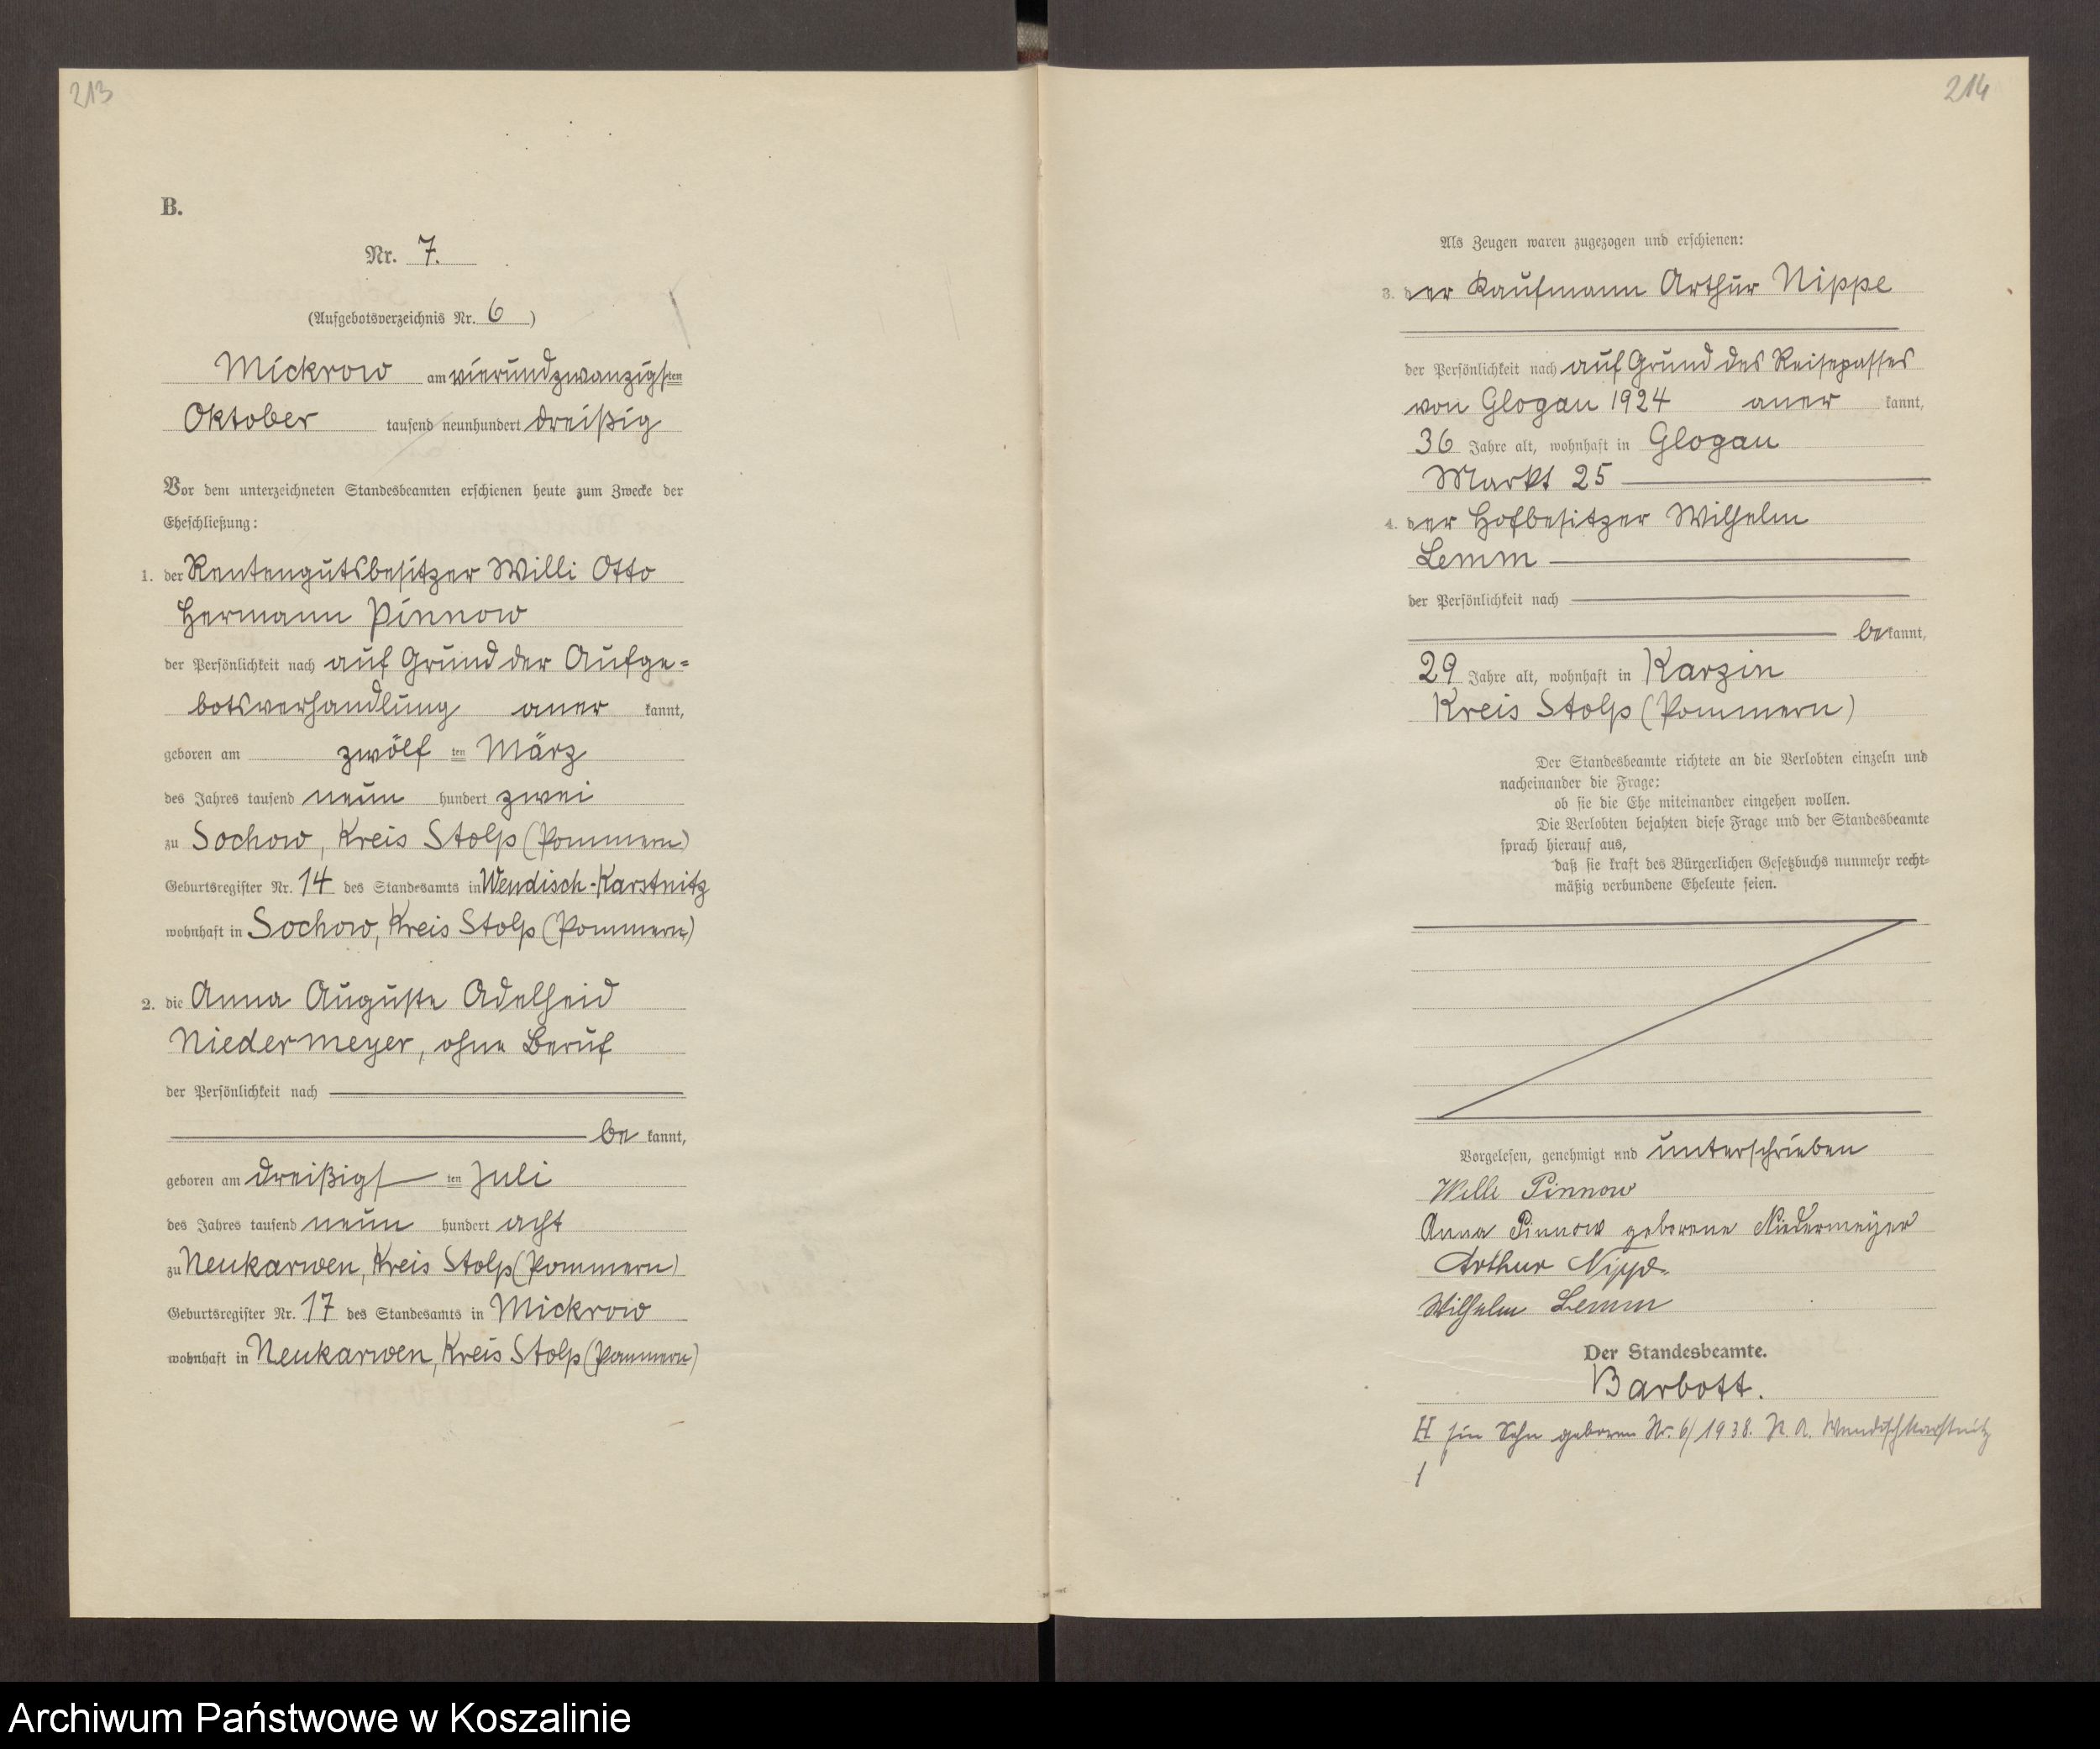 213
B.
Nr. 7.
(Aufgebotsverzeichnis Nr. 6)
Mickrow am vierundzwanzigsten
Oktober tausend neunhundert dreißig
Vor dem unterzeichneten Standesbeamten erschienen heute zum Zwecke der
Eheschließung:
1. der Rentengutsbesitzer Willi Otto
Hermann Pinnow
der Persönlichkeit nach auf Grund der Aufge=
botsverhandlung aner kannt,
geboren am zwölf ten März
des Jahres tausend neun hundert zwei
zu Sochow, Kreis Stolp (Pommern)
Geburtsregister Nr. 14 des Standesamts in Wendisch-Karstnitz
wohnhaft in Sochow, Kreis Stolp (Pommern)
2. die Anna Auguste Adelheid
Niedermeyer, ohne Beruf
der Persönlichkeit nach
be kannt,
geboren am dreißigst ten Juli
des Jahres tausend neun hundert acht
zu Neukarwen, Kreis Stolp (Pommern)
Geburtsregister Nr. 17 des Standesamts in Mickrow
wohnhaft in Neukarwen, Kreis Stolp (Pommern)
214
Als Zeugen waren zugezogen und erschienen:
3. der Kaufmann Arthur Nippe
der Persönlichkeit nach auf Grund des Reisepasses
von Glogau 1924 aner kannt,
36 Jahre alt, wohnhaft in Glogau
Markt 25
4. der Hofbesitzer Wilhelm
Lemm
der Persönlichkeit nach
be kannt,
29 Jahre alt, wohnhaft in Karzin
Kreis Stolp (Pommern)
Der Standesbeamte richtete an die Verlobten einzeln und
nacheinander die Frage:
ob sie die Ehe miteinander eingehen wollen.
Die Verlobten bejahten diese Frage und der Standesbeamte
sprach hierauf aus,
daß sie kraft des Bürgerlichen Gesetzbuchs nunmehr recht=
mäßig verbundene Eheleute seien.
Vorgelesen, genehmigt und unterschrieben
Willi Pinnow
Anna Pinnow geborene Niedermeyer
Arthur Nippe
Wilhelm Lemm
Der Standesbeamte.
Barbott.
Sohn geboren Nr. 6/1938. Wendisch Karstnitz
Archiwum Państwowe w Koszalinie